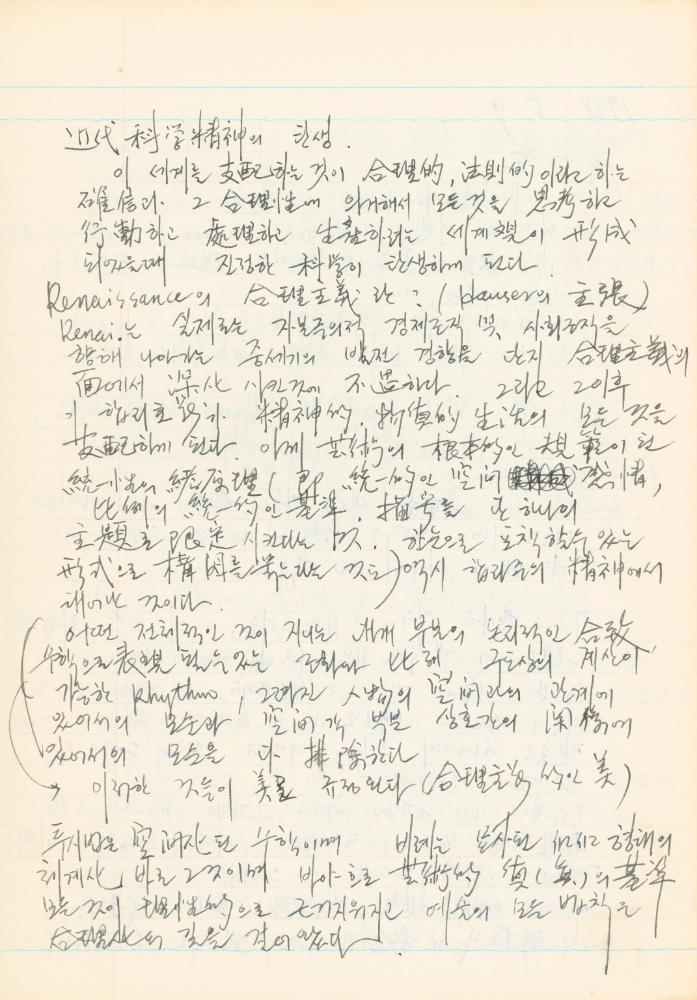 近代 科学精神의 탄생.
이 세계를 支配하는것이 合理的, 法則的이라고 하는
確信과 그 合理性에 의거해서 모든것을 思考하고
行動하고 處理하고 生産하려는 세계觀이 形成
되었을때 진정한 科学이 탄생하게 된다.
Renaissance의 合理主義란? (Hauser의 主張)
Renai.는 실제로는 자본주의적 경제조직 및 사회조직을
향해 나아가는 중세기의 발전 경향을 단지 合理主義의
面에서 深化 시킨것에 不過하다. 그리고 그이후
이 합리주의가 精神的, 物質的 生活의 모든 것을
支配하게 된다 이제 芸術의 根本的인 規範이 된
統一性의 原理 (即 統一的인 空間
比例의 統一的인 基準, 描写를 단 하나의
主題로 限定 시킨다는 것, 한눈으로 포착할수 있는
形式으로 構図를 묶는다는 것도) 역시 합리주의 精神에서
태어난 것이다.
어떤 전체적인 것이 지니는 개개 부분의 논리적인 合致,
수학으로 表現 될수 있는 조화와 比例 구도상의 계산이
가능한 Rhythm, 그러한 人物의 空間과의 관계에
있어서의 모순과 空間 각 부분 상호간의 関係에
있어서의 모순을 다 排除한다
이러한 것들이 美로 규정된다 (合理主義的인 美)
투시법은 空間化된 수학이며 비례는 묘사된 개개 형태의
체계화, 바로 그것이며 바야흐로 芸術的 質의 基準
모든것이 理性的으로 근거지워지고 예술의 모든 법칙은
合理化의 길을 걸어 왔다.